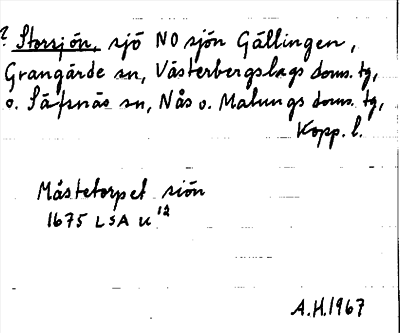 ? Storsjön, sjö NO sjön Gällingen,
Grangärde sn, Västerbergslags doms. tg,
o. Säfsnäs sn, Nås o. Malungs doms. tg,
Kopp. l.
Måstetorpet siön
1675 LSA U¹²
A.H. 1967